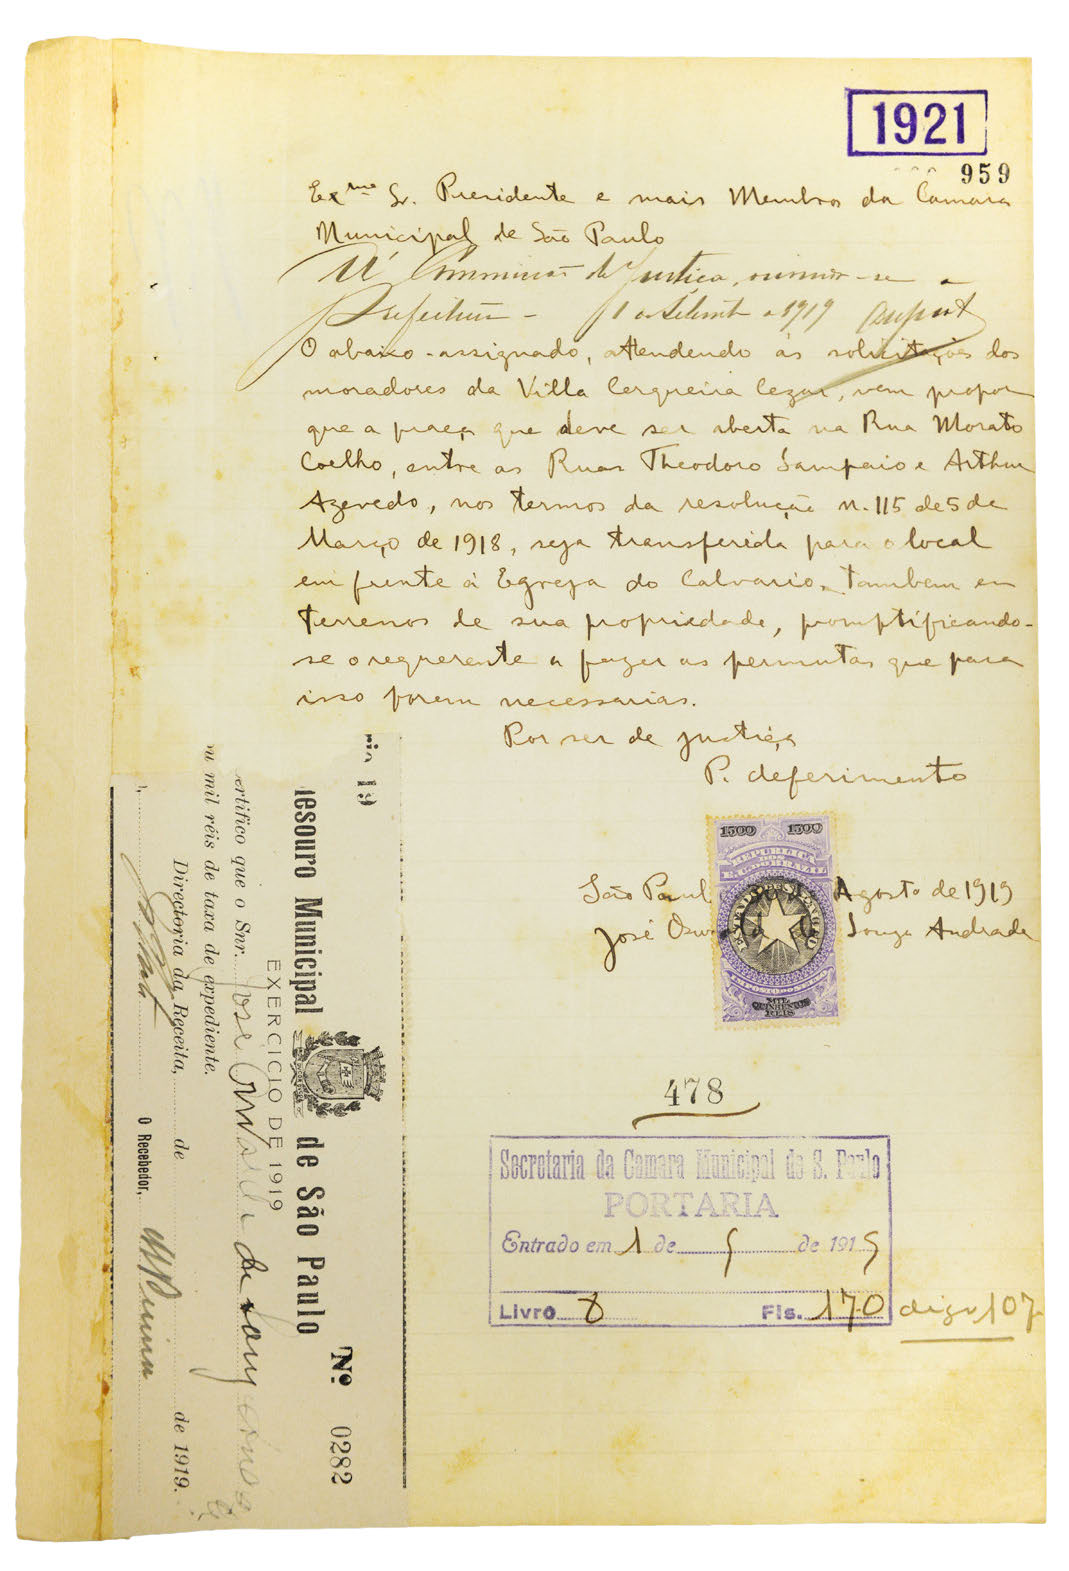 1921
959
Exmo Sr. Presidente e mais Membros da Camara
Municipal de São Paulo
Á Commissão de Justiça, ouvindo-se a
Prefeitura - 1 de Setembro de 1919
O abaixo-assignado, attendendo ás solicitações dos
moradores da Villa Cerqueira Cezar, vem propor
que a praça que deve ser aberta na Rua Morato
Coelho, entre as Ruas Theodoro Sampaio e Arthur
Azevedo, nos termos da resolução n. 115 de 5 de
Março de 1918, seja transferida para o local
em frente á Egreja do Calvario, tambem em
terrenos de sua propriedade, promptificando-
se o requerente a fazer as permutas que para
isso forem necessarias.
Por ser de justiça
P. deferimento
1500 1500
REPUBLICA
DOS
E.U. DO BRAZIL
ESTADO DE S. PAULO
IMPOSTO DO SELLO
MIL
QUINHENTOS
REIS
São Paul Agosto de 1919
José Osw de Souza Andrade
478
Secretaria da Camara Municipal de S. Paulo
PORTARIA
Entrado em 1 de 9 de 1919
Livro 8 Fls. 170 digo 107
19
esouro Municipal de São Paulo
Nº 0282
EXERCICIO DE 1919
ertifico que o Snr. José Oswaldo de Souza
mil réis de taxa de expediente.
Directoria da Receita, de de 1919.
O Recebedor,